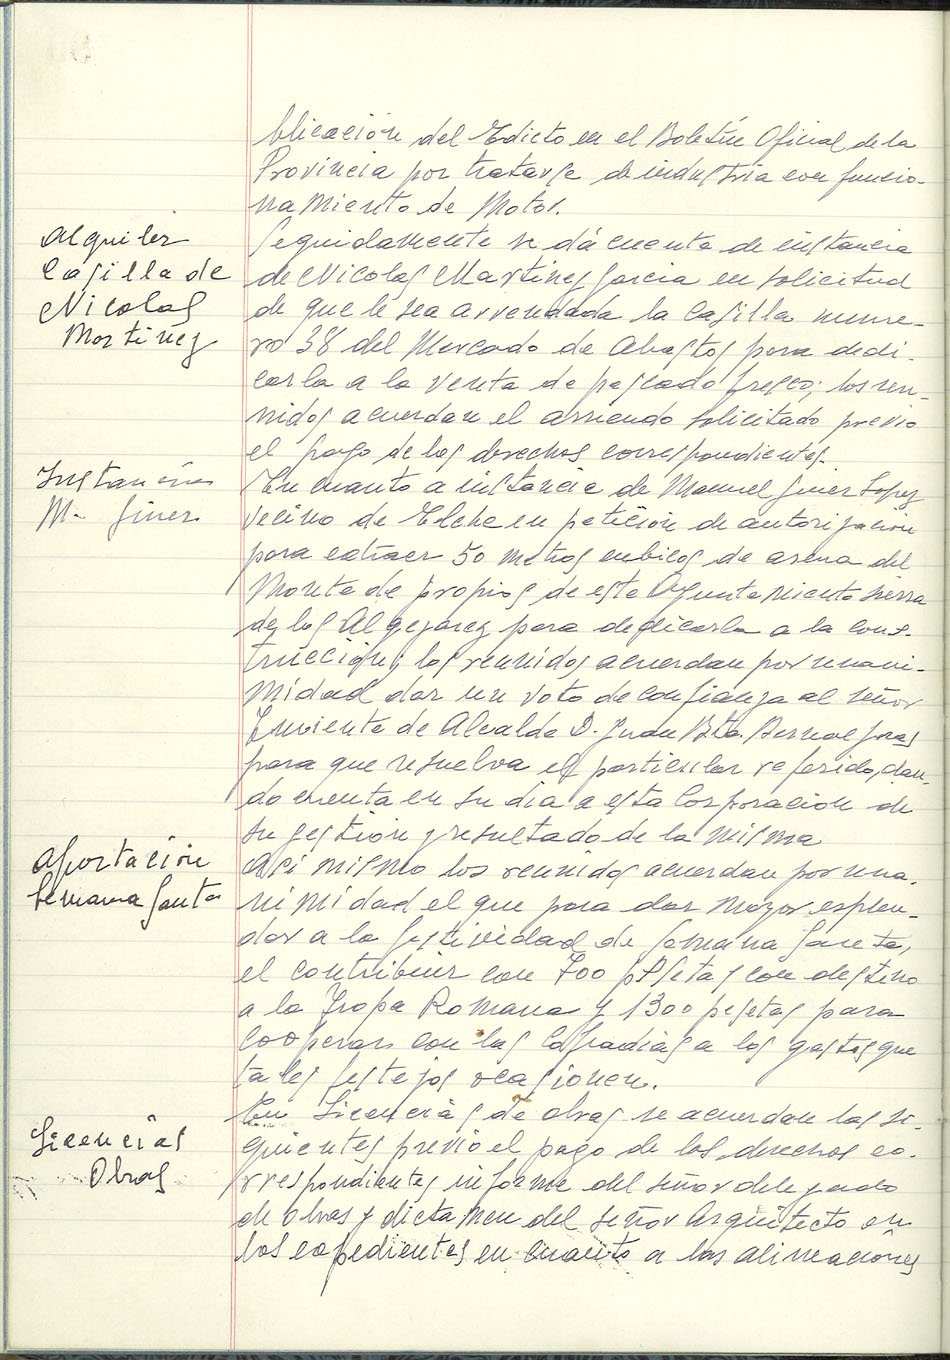 blicación del Edicto en el Boletín Oficial de la
Provincia por tratarse de industria con funcio-
namiento de Motor.
Alquiler
Casilla de
Nicolas
Martinez
Seguidamente se dá cuenta de instancia
de Nicolas Martinez Garcia en solicitud
de que le sea arrendada la Casilla nume-
ro 38 del Mercado de Abastos para dedi-
carla a la venta de pescado fresco; los reu-
nidos acuerdan el arriendo solicitado previo
el pago de los derechos correspondientes.
Instancia
M. Giner
En cuanto a instancia de Manuel Giner Lopez
vecino de Elche en petición de autorización
para extraer 50 metros cubicos de arena del
Monte de propios de este Ayuntamiento Sierra
de los Algezares para dedicarla a la cons-
trucción; los reunidos acuerdan por unani-
midad dar un voto de confianza al señor
Teniente de Alcalde D. Juan Bta. Bernal
para que resuelva el particular referido, dan-
do cuenta en su dia a esta Corporacion de
su gestion y resultado de la misma
Aportación
Semana Santa
Asi mismo los reunidos acuerdan por una-
nimidad el que para dar mayor esplen-
dor a la festividad de Semana Santa,
el contribuir con 700 pesetas con destino
a la Tropa Romana y 1300 pesetas para
cooperar con las Cofradias a los gastos que
tales festejos ocasionen.
Licencias
Obras
En Licencias de obras se acuerdan las si-
guientes previo el pago de los derechos co-
rrespondientes informe del señor delegado
de obras y dictamen del señor Arquitecto en
los expedientes en cuanto a las alineaciones